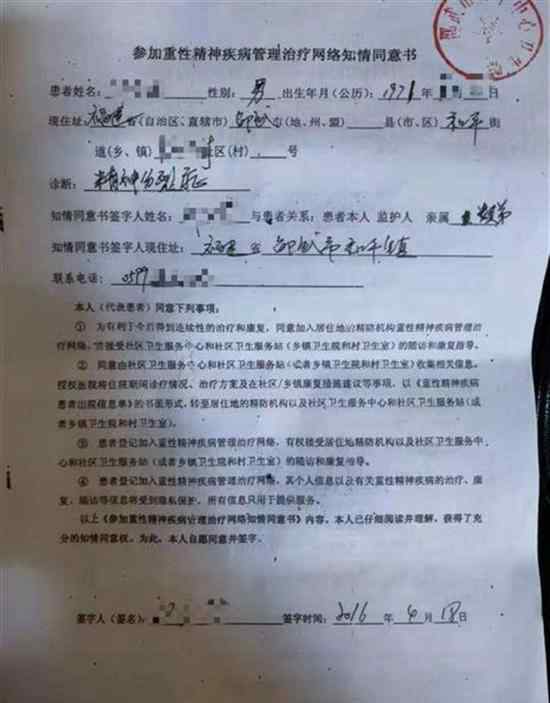 参加重性精神疾病管理治疗网络知情同意书
患者姓名: 性别: 男 出生年月(公历): 1971 年 日
现住址: 福建 省(自治区、直辖市) 邵武 市(地、州、盟) 县(市、区) 和平 街
道(乡、镇) 社区(村) 号
诊断: 精神分裂症
知情同意书签字人姓名: 与患者关系: 患者本人 监护人 亲属
知情同意书签字人现住址: 福建省邵武市和平镇
联系电话: 0599
本人(代表患者)同意下列事项:
① 为有利于今后得到连续性的治疗和康复,同意加入居住地的精防机构重性精神疾病管理治
疗网络,并接受社区卫生服务中心和社区卫生服务站(乡镇卫生院和村卫生室)的随访和康复指导。
② 同意由社区卫生服务中心和社区卫生服务站(或者乡镇卫生院和村卫生室)收集相关信息。
授权医院将住院期间诊疗情况、治疗方案及在社区/乡镇康复措施建议等事项,以《重性精神疾病
患者出院信息单》的书面形式,转至居住地的精防机构以及社区卫生服务中心和社区卫生服务站(或
者乡镇卫生院和村卫生室)。
③ 患者登记加入重性精神疾病管理治疗网络,有权接受居住地精防机构以及社区卫生服务中
心和社区卫生服务站(或者乡镇卫生院和村卫生室)的随访和康复指导。
④ 患者登记加入重性精神疾病管理治疗网络,其个人信息以及有关重性精神疾病的治疗、康
复、随访等信息将受到隐私保护,所有信息只用于提供服务。
以上《参加重性精神疾病管理治疗网络知情同意书》内容,本人已仔细阅读并理解,获得了充
分的知情同意权。为此,本人自愿同意并签字。
签字人(签名): 签字时间: 2016 年 4 月 日